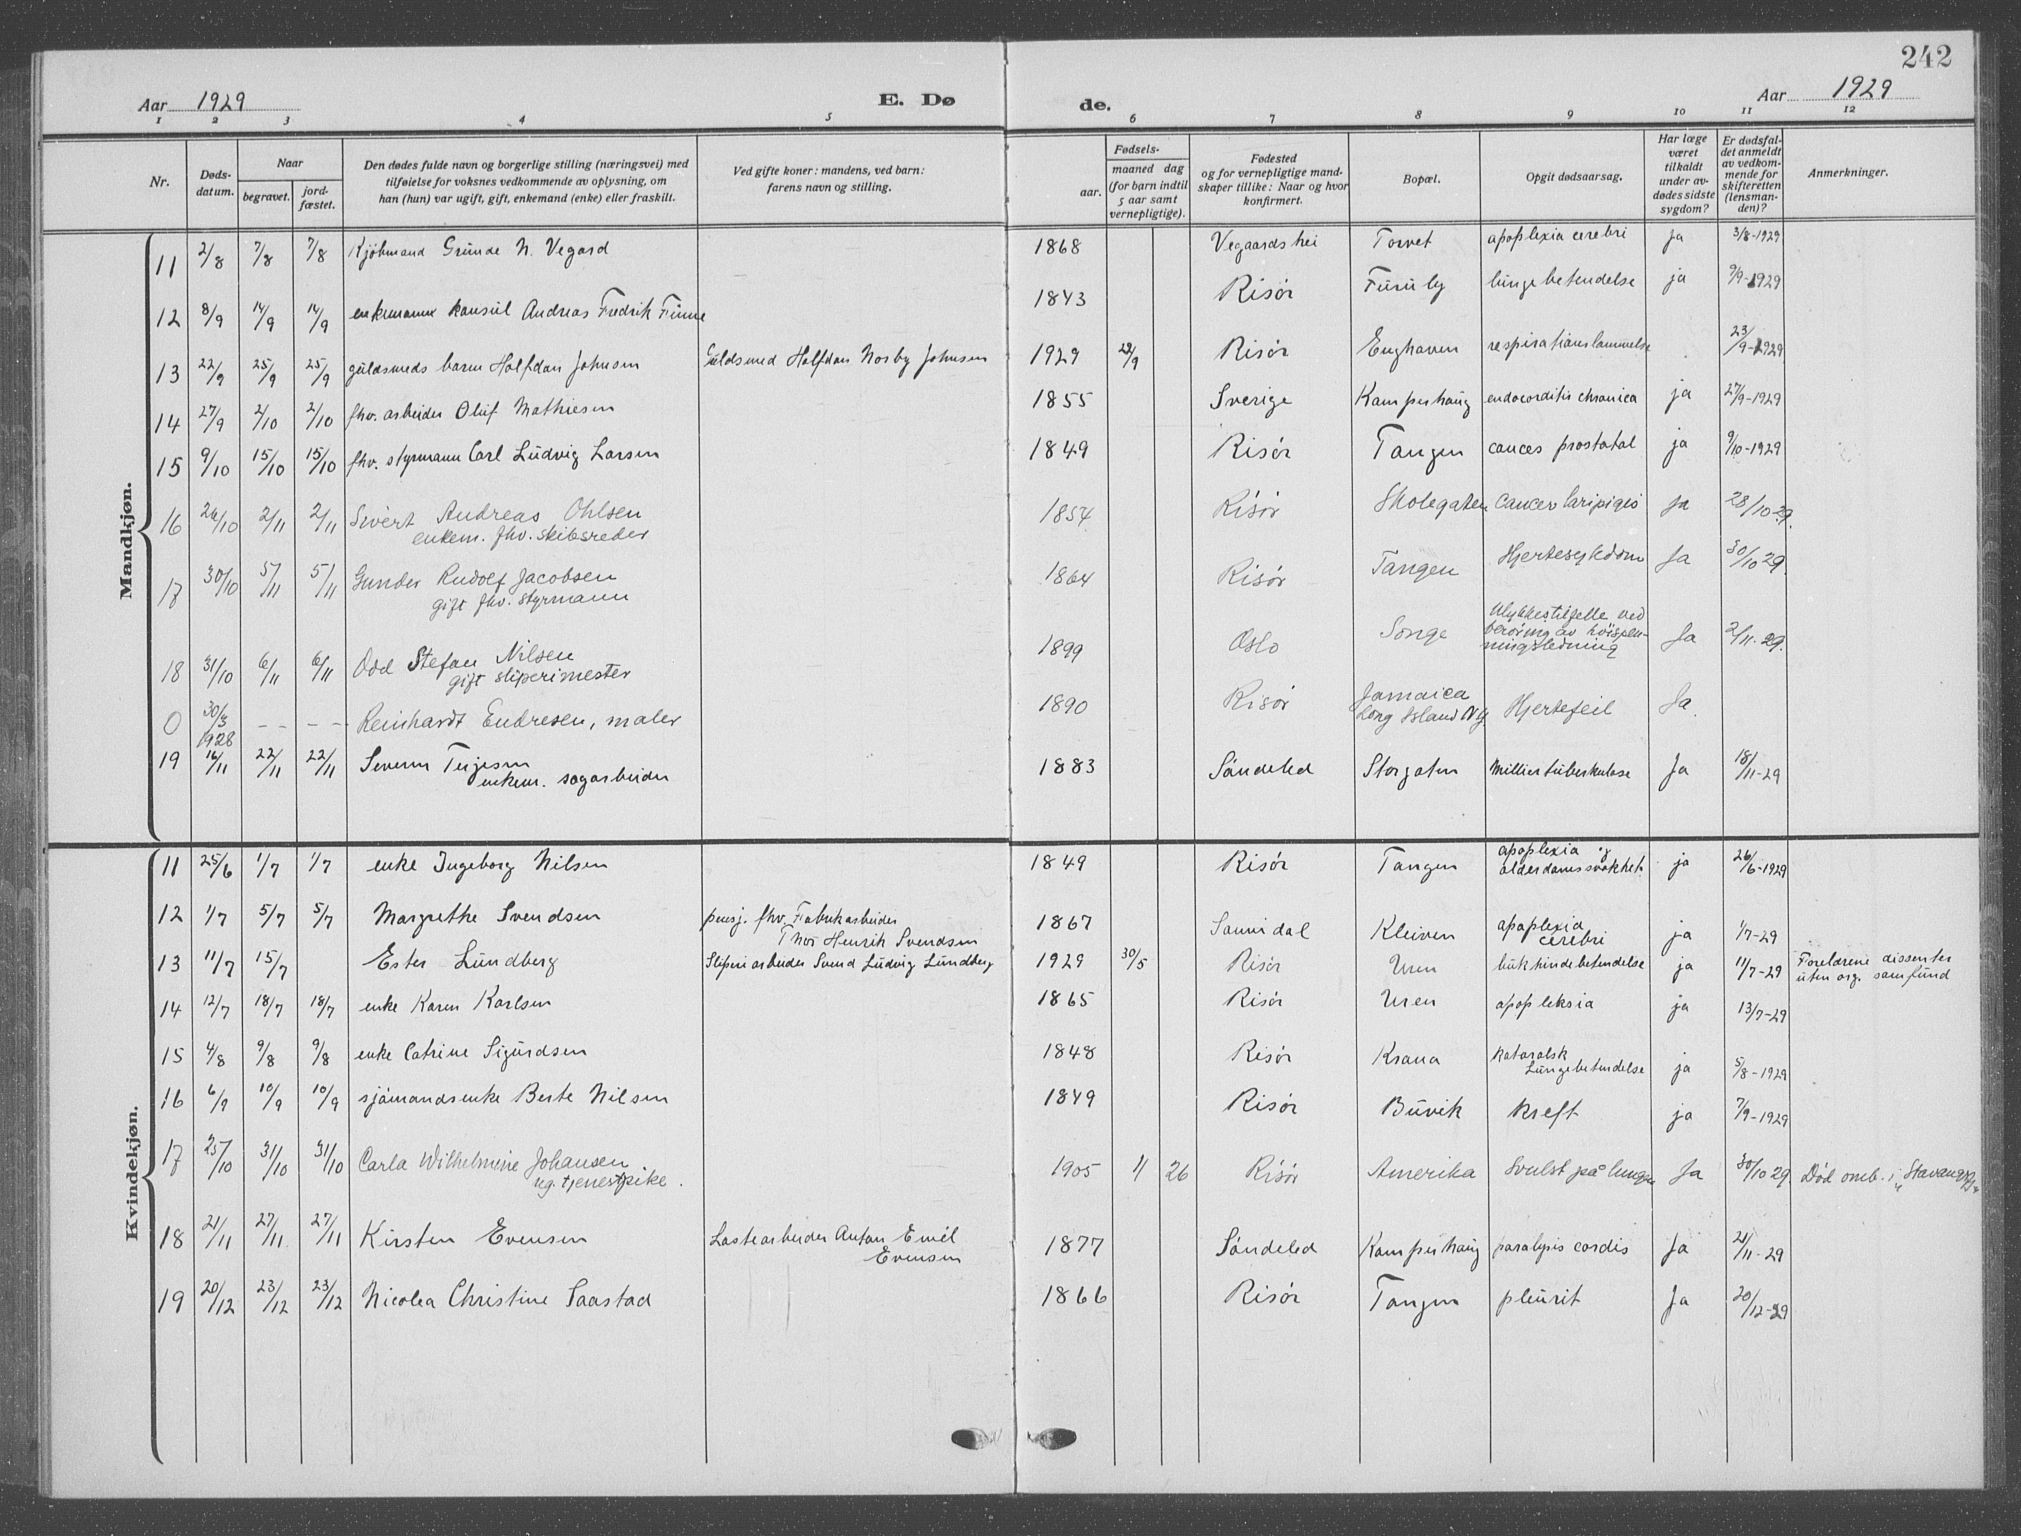 242
Aar 1929 E. Dø de. Aar 1929
1 2 3 4 5 6 7 8 9 10 11 12
Nr.
Døds-
datum.
Naar
begravet.
jord-
fæstet.
Den dødes fulde navn og borgerlige stilling (næringsvei) med
tilføielse for voksnes vedkommende av oplysning, om
han (hun) var ugift, gift, enkemand (enke) eller fraskilt.
Ved gifte koner: mandens, ved barn:
farens navn og stilling.
Fødsels-
aar.
maaned dag
(for barn indtil
5 aar samt
vernepligtige).
Fødested
og for vernepligtige mand-
skaper tillike: Naar og hvor
konfirmert.
Bopæl.
Opgit dødsaarsag.
Har læge
været
tilkaldt
under av-
dødes sidste
sygdom?
Er dødsfal-
det anmeldt
av vedkom-
mende for
skifteretten
(lensman-
den)?
Anmerkninger.
Mandkjøn.
11 2/8 7/8 7/8 Kjøbmand Grunde N. Vegard 1868 Vegaardshei Torvet apoplexia cerebri ja 3/8-1929
12 8/9 14/9 14/9 enkemann konsul Andreas Fredrik Finne 1843 Risør Furuly lungebetendelse ja 9/9-1929
13 22/9 25/9 25/9 guldsmeds barn Halfdan Johnsen Guldsmed Halfdan Norby Johnsen 1929 22/9 Risør Enghaven respirationslammelse 23/9-1929
14 27/9 2/10 2/10 fhv. arbeider Oluf Mathiesen 1855 Sverige Kamperhaug endocorditis chronica ja 27/9-1929
15 9/10 15/10 15/10 fhv. styrmann Carl Ludvig Larsen 1849 Risør Tangen cances prostatal ja 9/10-1929
16 26/10 2/11 2/11 Sivert Andreas Ohlsen 1854 Risør Skolegaten cancer laripigis Ja 28/10 29.
enkem. fhv. skibsreder
17 30/10 5/11 5/11 Gunder Rudolf Jacobsen 1864 Risør Tangen Hjertesykdom Ja 30/10 29.
gift fhv. styrmann
18 31/10 6/11 6/11 Odd Stefan Nilsen 1899 Oslo Songe Ulykkestilfelle ved
berøring av høispen-
ningsledning Ja 2/11-29.
gift sliperimester
0 30/3 1928 - - - - Reinhardt Endresen, maler 1890 Risør Jamaica
Long Island NY Hjertefeil Ja.
19 16/11 22/11 22/11 Severin Terjesen 1883 Søndeled Storgaten Milliertuberkulose Ja 18/11-29
enkem. sagarbeider
Kvindekjøn.
11 25/6 1/7 1/7 enke Ingeborg Nilsen 1849 Risør Tangen apoplexia og
alderdomssvakhet ja 26/6-1929
12 1/7 5/7 5/7 Margrethe Svendsen pensj. fhv. Fabrikarbeider
Thor Henrik Svendsen 1867 Sannidal Kleiven apoplexia
cerebri ja 1/7-29
13 11/7 15/7 Ester Lundberg Sliperiarbeider Svend Ludvig Lundberg 1929 30/5 Risør Uren bukhindebetendelse ja 11/7-29 Foreldrene dissenter
uten org. samfund
14 12/7 18/7 18/7 enke Karen Karlsen 1865 Risør Uren apopleksia ja 13/7-29
15 4/8 9/8 9/8 enke Catrine Sigurdsen 1848 Risør Krana kataralsk
Lungebetendelse ja 5/8-1929
16 6/9 10/9 10/9 sjømandsenke Berte Nilsen 1849 Risør Buvik kreft ja 7/9-1929
17 25/10 31/10 31/10 Carla Wilhelmine Johansen 1905 11 26 Risør Amerika Svulst på lungen Ja 30/10 29 Død omb. i "Stavangerfj"
ug. tjenestpike.
18 21/11 27/11 27/11 Kirsten Evensen Lastearbeider Anton Emil
Evensen 1877 Søndeled Kamperhaug paralysis cordis Ja 21/11-29
19 20/12 23/12 23/12 Nicolea Christine Saastad 1866 Risør Tangen pleurit Ja 20/12-29